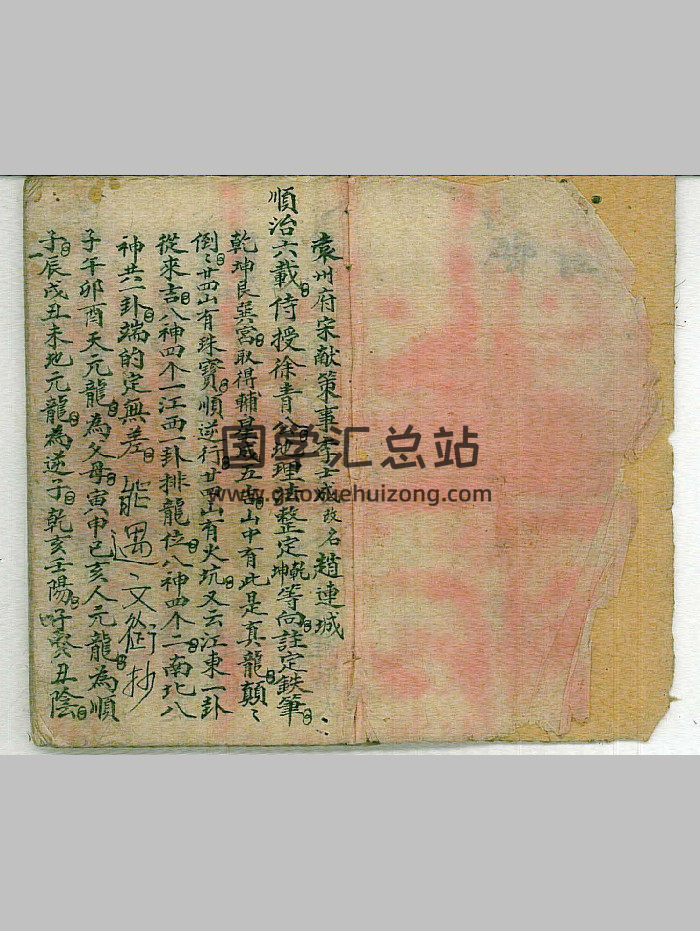 袁州府宋献策事李士成改名趙連城
順治六載侍授徐青公地理 整定乾坤等向註定鉄筆
乾坤艮巽宮取得輔星成五吉山中有此是真龍顛〻
倒〻廿四山有珠寶順逆行廿四山有火坑又云江東一卦
從來吉八神四个一江西一卦排龍位八神四个二南北八
神共一卦端的定無差 能遇〻文 抄
子午卯酉天元龍為父母寅申巳亥人元龍為順
子辰戌丑未地元龍為逆子乾亥壬陽 癸丑陰
国学汇总站
www.guoxuehuizong.com